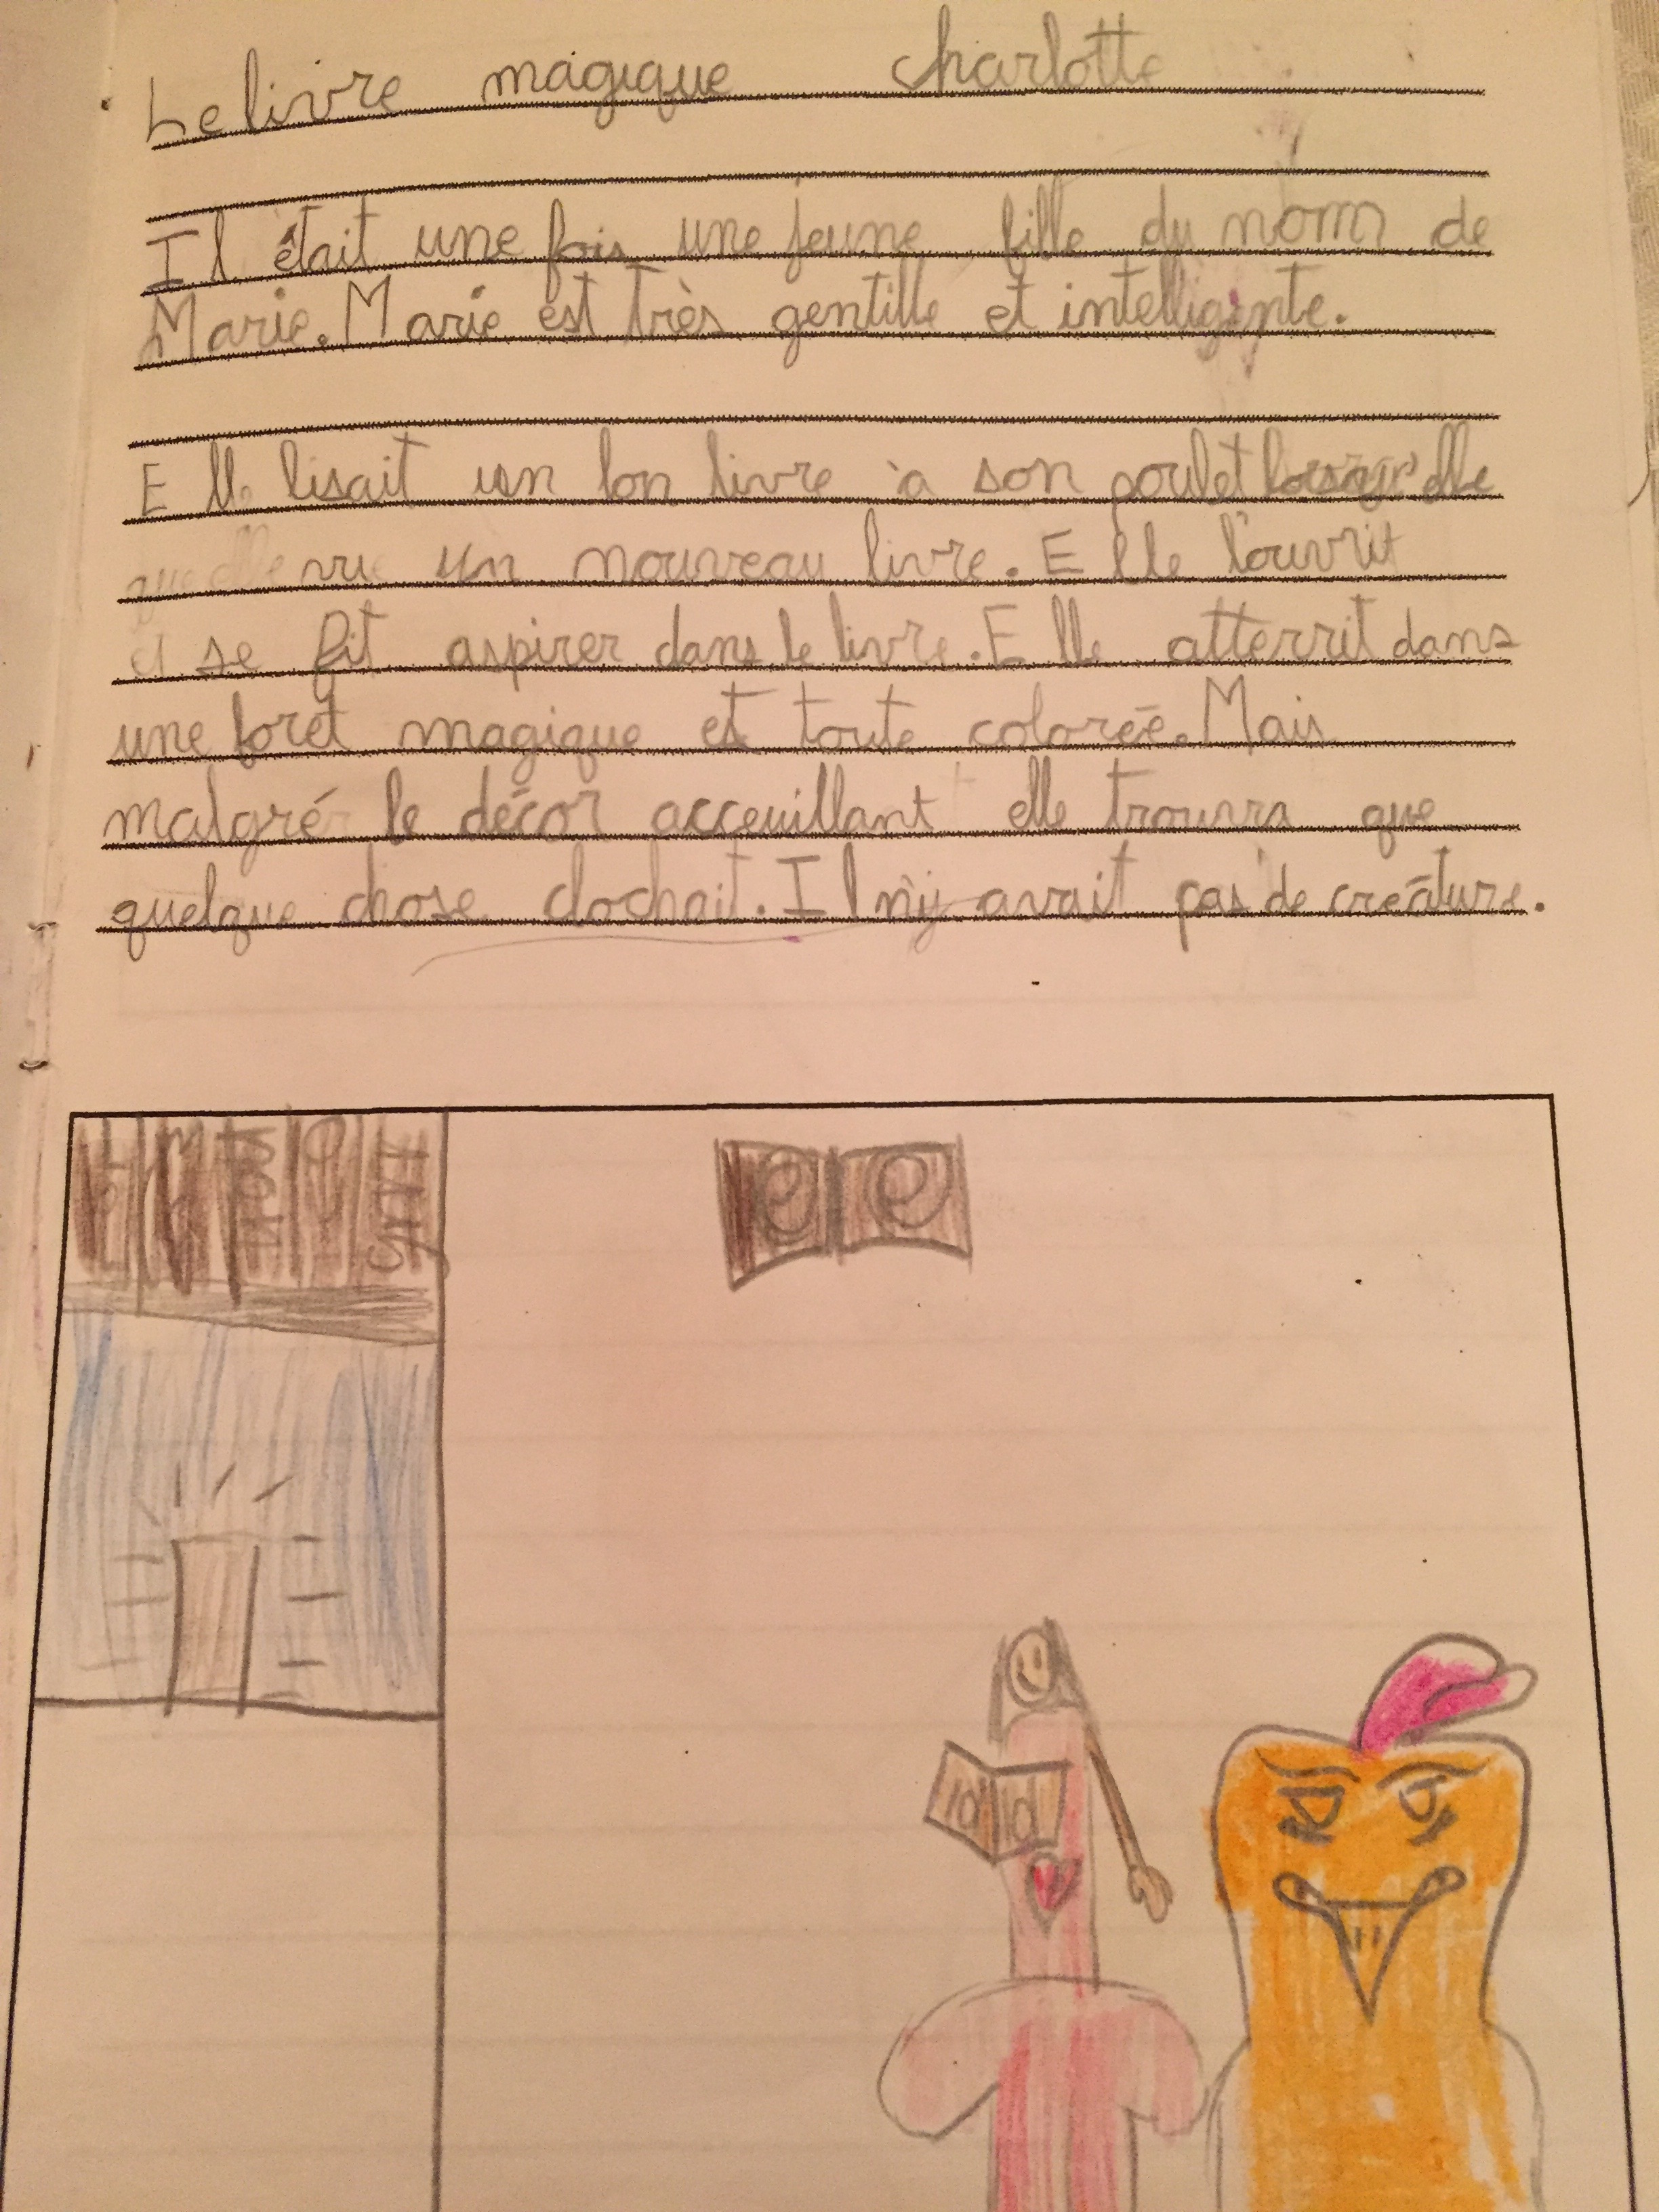 Le livre magique Charlotte
Il était une fois une jeune fille du nom de
Marie. Marie est très gentille et intelligente.
Elle lisait un bon livre à son poulet lorsqu'elle
vu un nouveau livre. Elle l'ouvrit
et se fit aspirer dans le livre. Elle atterrit dans
une foret magique et toute colorée. Mais
malgré le décor acceuillant elle trouva que
quelque chose clochait. Il n'y avait pas de créature.